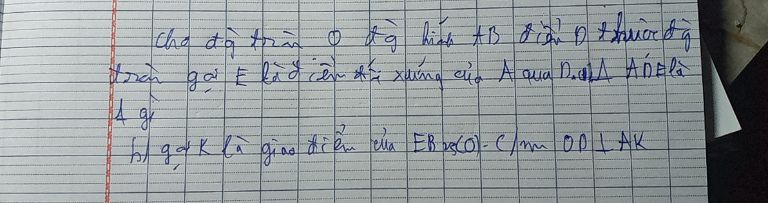 Cho đg tròn O đg kính AB điểm D thuộc đg
tròn gọi E là điểm đối xứng của A qua D. a) Δ ADE là
Δ gì
b) gọi K là giao điểm của EB vs (O). C/m OD ⊥ AK